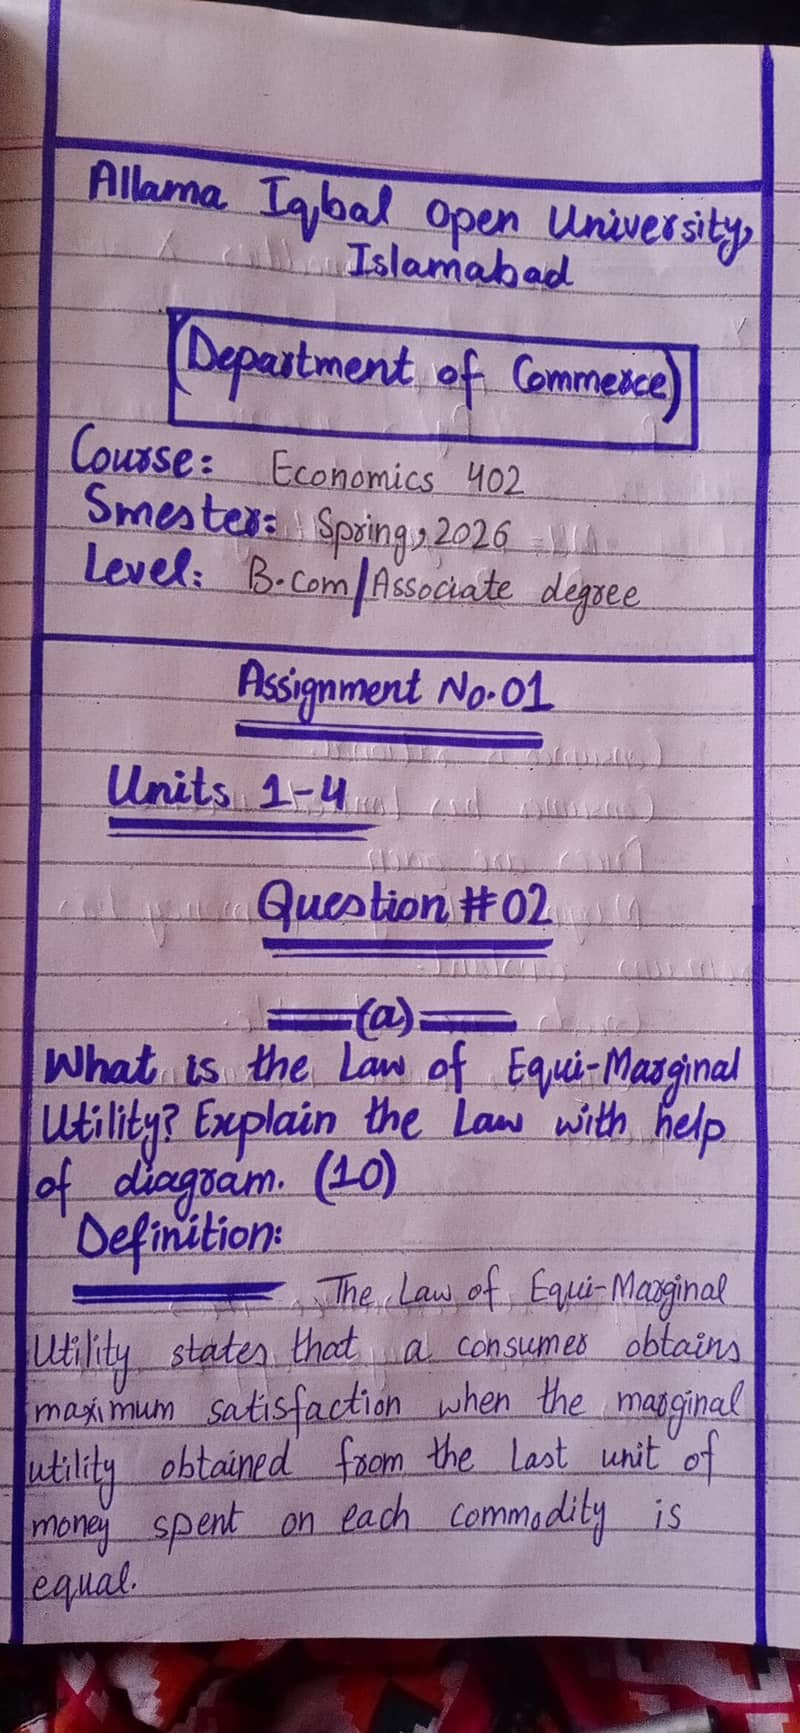 Allama Iqbal Open University,
Islamabad
(Department of Commerce)
Course: Economics 402
Smester: Spring, 2026
Level: B.com/Associate degree
Assignment No.01
Units 1-4
Question #02
(a)
What is the Law of Equi-Marginal
Utility? Explain the Law with help
of diagram. (10)
Definition:
The Law of Equi-Marginal
Utility states that a consumer obtains
maximum satisfaction when the marginal
utility obtained from the last unit of
money spent on each commodity is
equal.